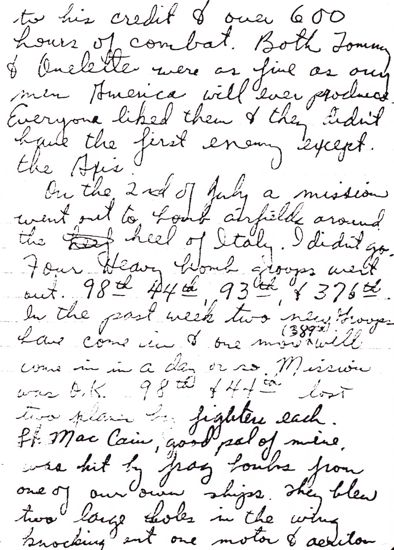 to his credit & over 600
hours of combat. Both Tommy
& Ouelette were as fine as any
men America will ever produce.
Everyone liked them & they didn't
have the first enemy except
the Axis.
On the 2nd of July a mission
went out to bomb airfields around
the heel of Italy. I didn't go.
Four Heavy bomb groups went
out. 98th, 44th, 93th, & 376th.
In the past week two new Groups
have come in & one more (389th) will
come in in a day or so. Mission
was O.K. 98th & 44th lost
two planes by fighters each.
Lt. Mac Cain, good pal of mine,
was hit by frag bombs from
one of our own ships. They blew
two large holes in the wing
knocking out one motor &